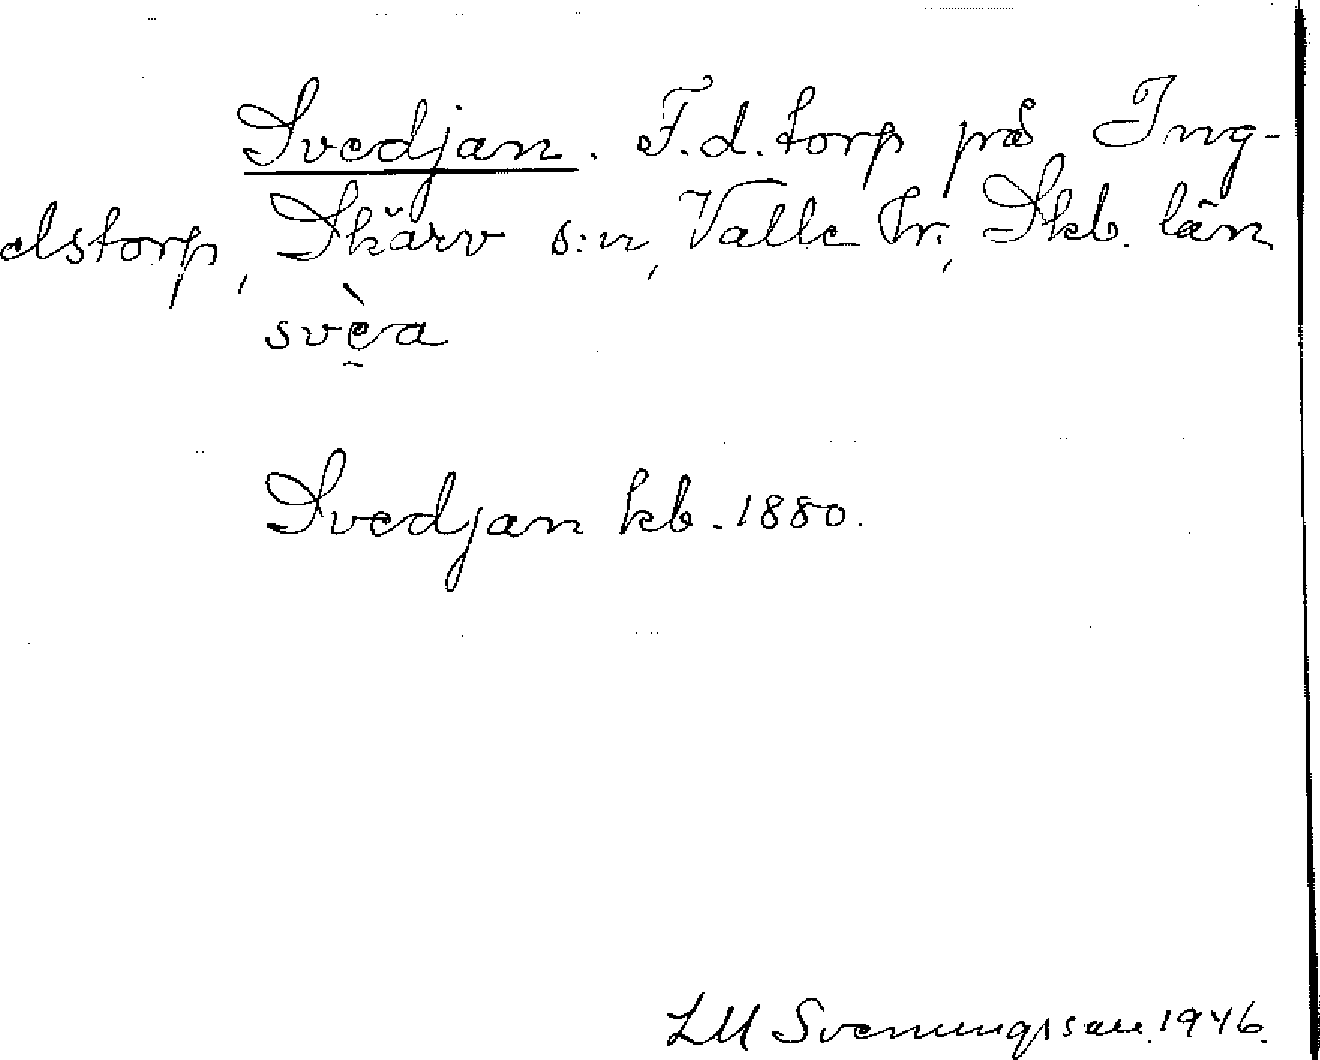 Svedjan. F.d. torp på Ing-
elstorp, Skärv s:n, Valle hr, Skb. län
svè̱a
Svedjan kb. 1880.
LM Svenungsson. 1946.